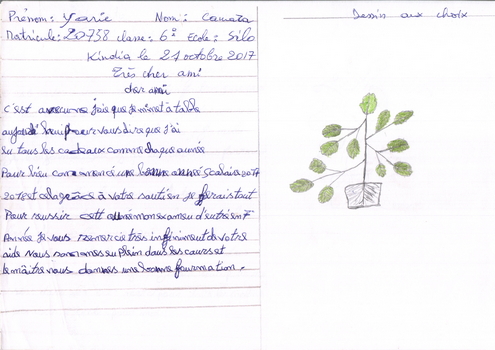 Prénom: Yarie Nom: Camara
Matricule: 20738 classe: 6è Ecole: Silo
Kindia le 21 octobre 2017
Très cher ami
cher ami
C'est avec une joie que je met à table
pour vous dire que j'ai
tous les cadeaux comme chaque année
Pour bien commencé une bonne année Scolaire 2017
2018 et grâce à votre soutien je ferais tout
Pour reussir cett année mon examen d'entré en 7è
Année je vous remercie très infiniment de votre
aide Nous sommes en plein dans les cours et
le maître nous donnes une bonne fourmation.
Dessin aux choix